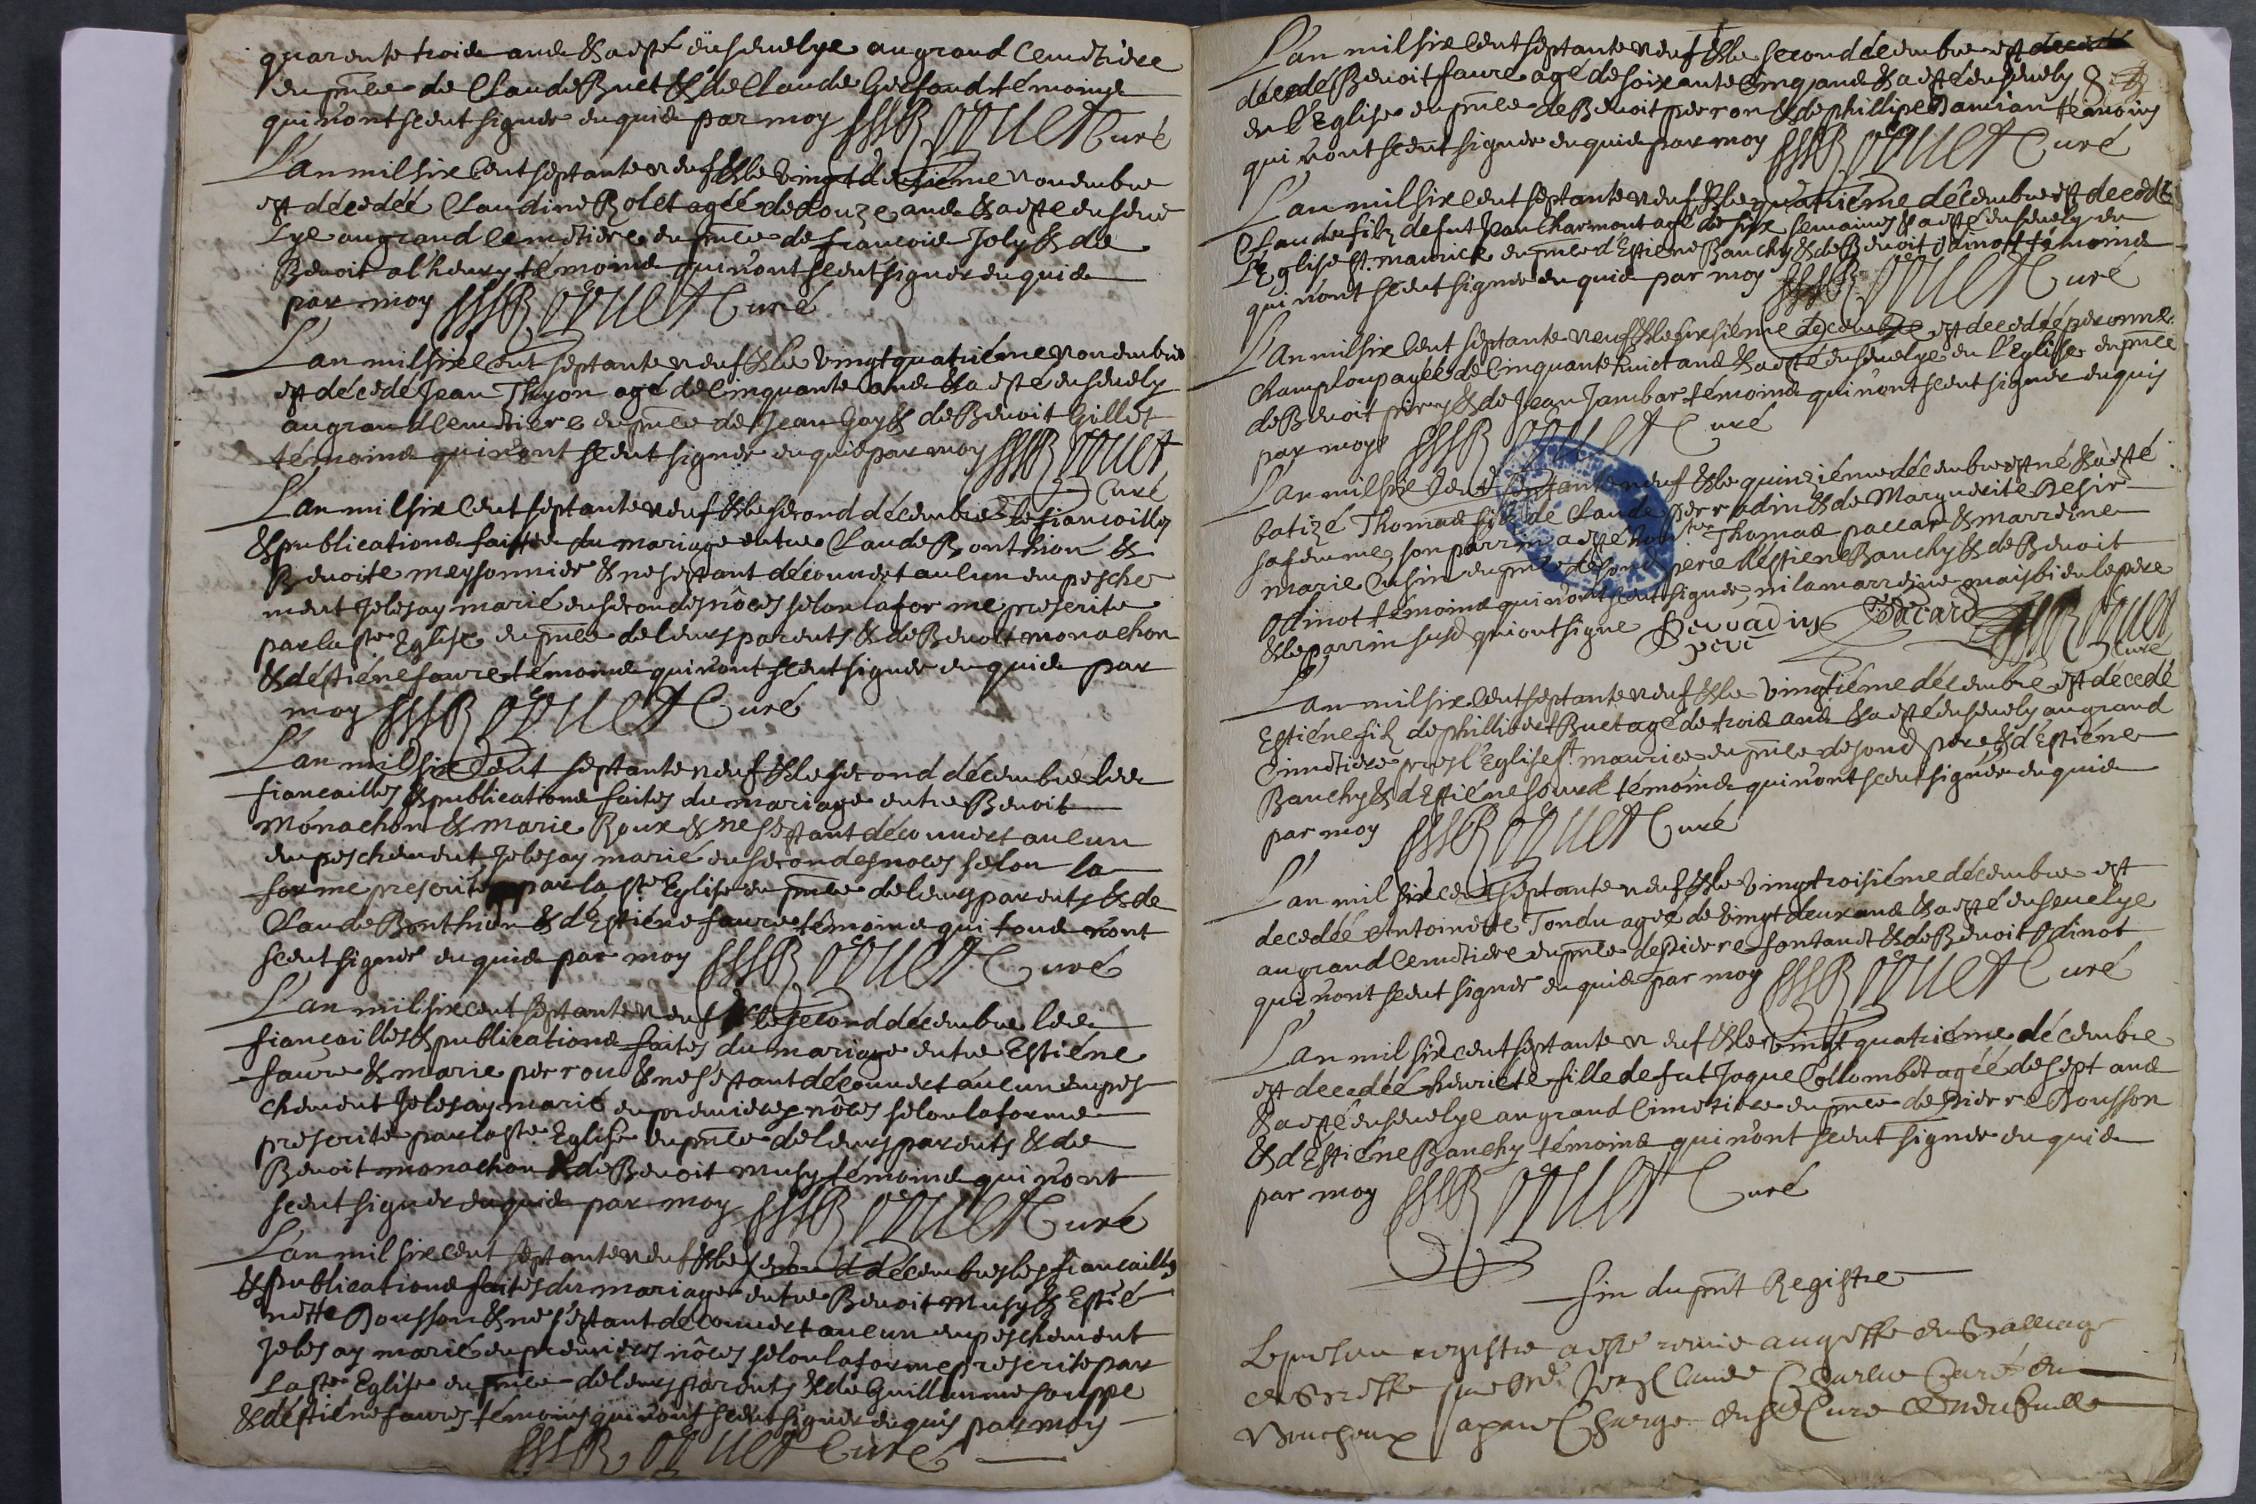 quarente trois ans & a esté ensevelye au grand Cemetiere
en pnce de Claude Buet & de Claude Gerfaud témoins
qui n'ont sceut signer enquis par moy Curé
L'an mil six Cent septante neuf & le vingt novembre
est décedée Claudine Bolet agée de douze ans & a esté enseve
lye au grand Cemetiere en pnce de francois Joly & de
Benoit alhenry témoins qui n'ont sceut signer enquis
par moy Curé
L'an mil six Cent septante neuf & le vingt quatriéme novembre
est décedé Jean Thyon agé de Cinquante ans & a esté ensevely
au grand Cemetiere en pnce de Jean Goy & de Benoit Gillet
témoins qui n'ont sceut signer enquis par moy
Curé
L'an mil six Cent septante neuf & le second décembre les fiancailles
& publications faites du mariage entre Claude Bonthion &
Benoite meysonnier & ne sestant décounert aucun empesche
ment Je les ay marié en secondes nôces selon la forme prescrite
par la ste Eglise en pnce de leurs parents & de Benoit monachon
& d'Estiéne faure témoins qui n'ont sceut signer enquis par
moy Curé
L'an mil six Cent septante neuf & le second décembre les
fiancailles & publications faites du mariage entre Benoit
Monachon & marie Roux & ne sestant découuert aucun
empeschement Je les ay marié en secondes noces selon la
forme prescrite par la ste Eglise en pnce de leurs parents & de
Claude Bonthion & d'Estiéne faure témoins qui tous n'ont
sceut signer enquis par moy Curé
L'an mil six cent septante neuf & le second décembre les
fiancailles & publications faites du mariage entre Estiéne
faure & marie perron & ne sestant découuert aucun empes
chement Je les ay marié en premieres nôces selon la forme
prescrite par la ste Eglise en pnce de leurs parents & de
Benoit monachon & de Benoit Musy témoins qui n'ont
sceut signer enquis par moy Curé
L'an mil six cent septante neuf & le second décembre les fiancailles
& publications faites du mariage entre Benoit Musy & Estié
nette Bousson & ne sestant découuert aucun empeschement
Je les ay marié en premieres nôces selon la forme prescrite par
la ste Eglise en pnce de leurs parents & de Guillaume
& d'Estiéne faure témoins qui n'ont sceut signer enquis par moy
Curé
L'an mil six Cent septante neuf & le second décembre est
décedé Benoit faure agé de soixante Cinq ans & a esté ensevely
en l'Eglise en pnce de Benoit perron & de phillipe Damian témoins
qui n'ont sceut signer enquis par moy Curé
L'an mil six Cent septante neuf & le quatriéme décembre est decedé
Claude filz de fut Jean Charmont agé de six semaines & a esté ensevely en
L'Eglise st. maurice en pnce d'Estiéne Banchy & de Benoit odinot témoins
qui n'ont sceut signer enquis par moy Curé
L'an mil six Cent septante neuf & le sixsiéme décembre est decedée peronne
Champloup agée de Cinquante huict ans & a esté ensevelye en l'Eglise en pnce
de Benoit & de Jean Jambar témoins qui n'ont sceut signer enquis
par moy Curé
L'an mil six Cent septante neuf & le quinziéme décembre est né & a esté
batizé Thomas filz de Claude perradin & de Marguerite
sa femme, son parrin a esté Thomas paccar & marreine
marie Cusin en pnce de sond pere d'Estiene Banchy & de Benoit
Odinot témoins qui n'ont sceut signer, ni la marreine mais bien le pere
& le parrin susd qui ont signé Perradin Paccard
pere Curé
L'an mil six Cent septante neuf & le vingtiéme décembre est décedé
Estiéne filz de phillibert Buet agé de trois ans & a esté ensevely au grand
Cimetiere pres l'Eglise st. maurice en pnce de sond pere & d'Estiéne
Banchy & d'Estiéne témoins qui n'ont sceut signer enquis
par moy Curé
L'an mil six cent septante neuf & le vingtroisiéme décembre est
decedée Antoinette Tondu agée de vingt deux ans & a esté ensevelye
au grand Cemetiere en pnce de pierre fontanet & de Benoit Odinot
qui n'ont sceut signer enquis par moy Curé
L'an mil six cent septante neuf & le vingt quatriéme décembre
est decedée henriete fille de fut Jaque Collombet agée de sept ans
& a esté ensevelye au grand Cimetiere en pnce de pierre Bousson
& d'Estiéne Banchy témoins qui n'ont sceut signer enquis
par moy Curé
fin du pnt Registre
Le present registre a esté remis au greffe du Balliage
de par Mre Jean Claude Curé de
ayant Charge dud Sr Curé